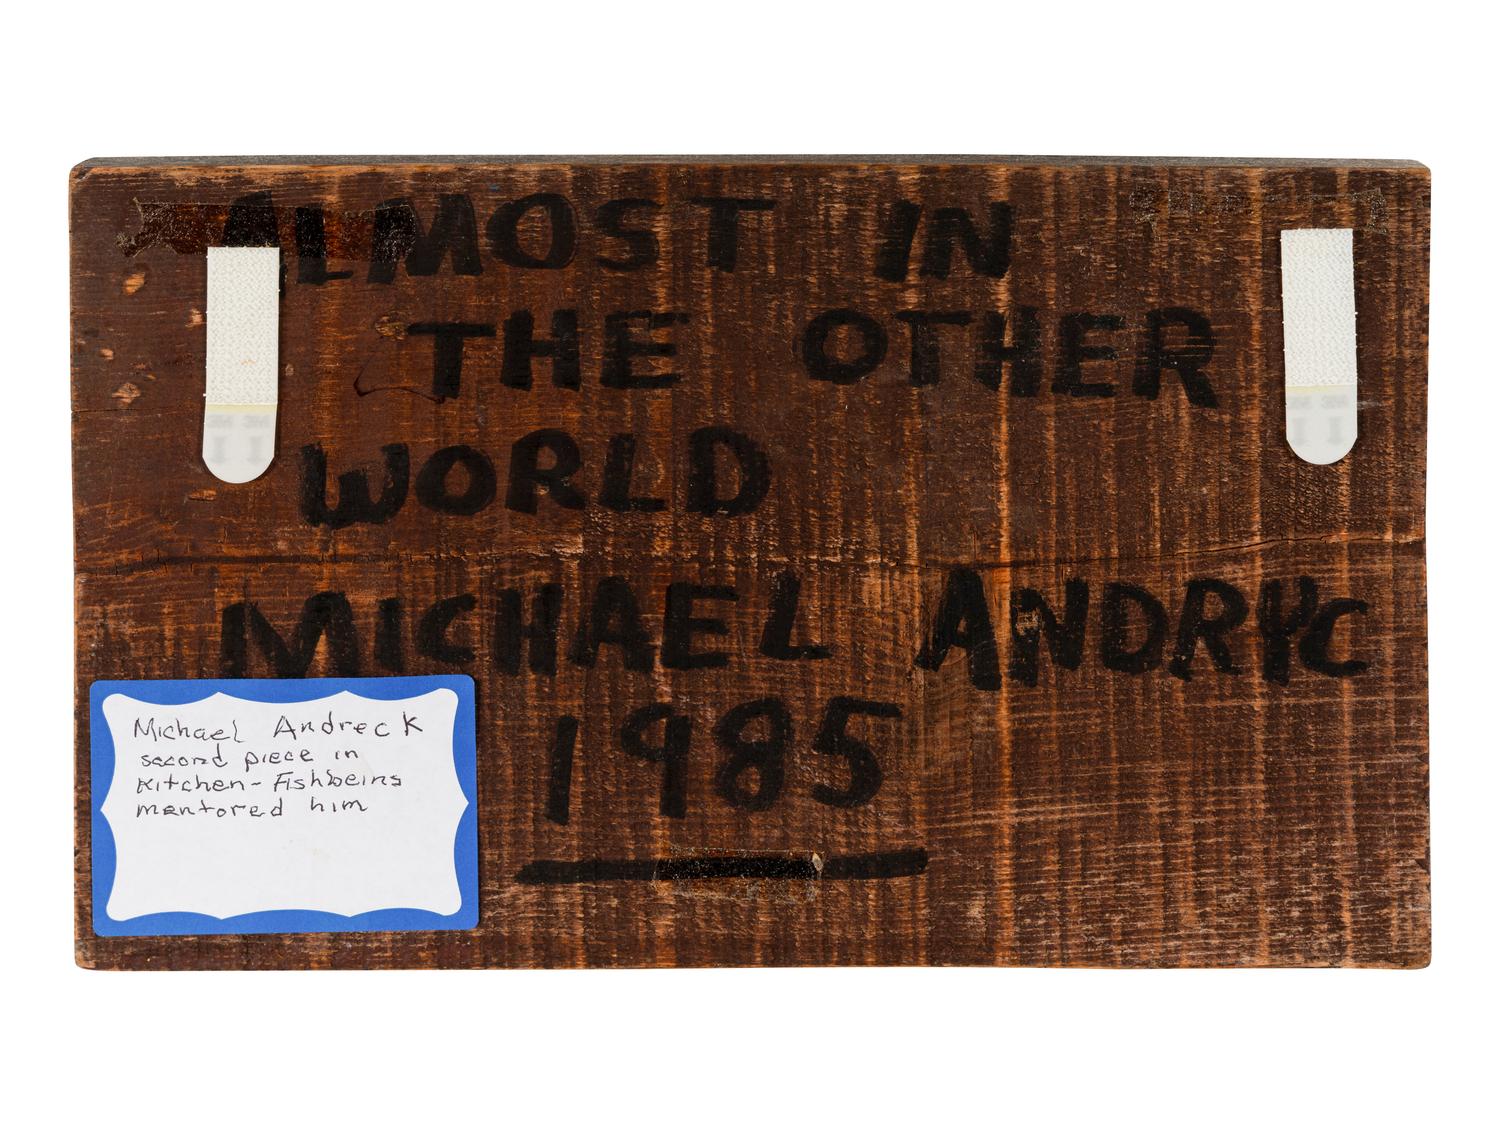 ALMOST IN
THE OTHER
WORLD
MICHAEL ANDRYC
1985
Michael Andreck
second piece in
kitchen - Fishbeins
mentored him